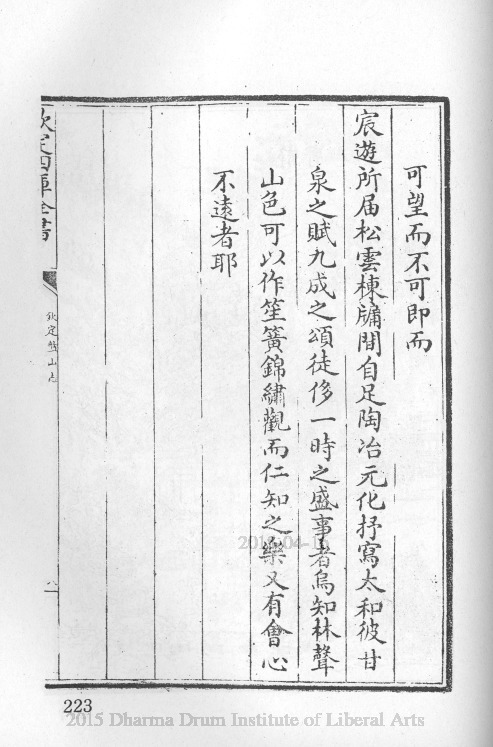 可望而不可即而
宸遊所届松雲棟牖間自足陶冶元化抒寫太和彼甘
泉之賦九成之頌徒侈一時之盛事者烏知林聲
山色可以作笙簧錦繡觀而仁知之樂又有會心
不遠者耶
欽定四庫全書
欽定盤山志
223
2015 Dharma Drum Institute of Liberal Arts